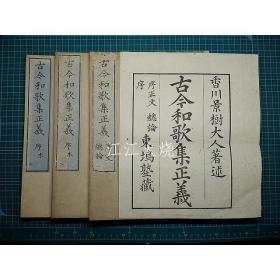 香川景樹大人著述
古今和歌集正義
序正文 總論
序
東塢塾藏
古今和歌集正義
總論
古今和歌集正義 序本
古今和歌集正義 序末